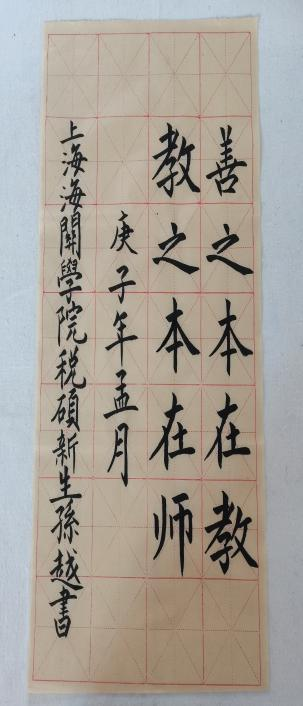 善之本在教
教之本在师
庚子年孟月
上海海關學院税碩新生孫越書